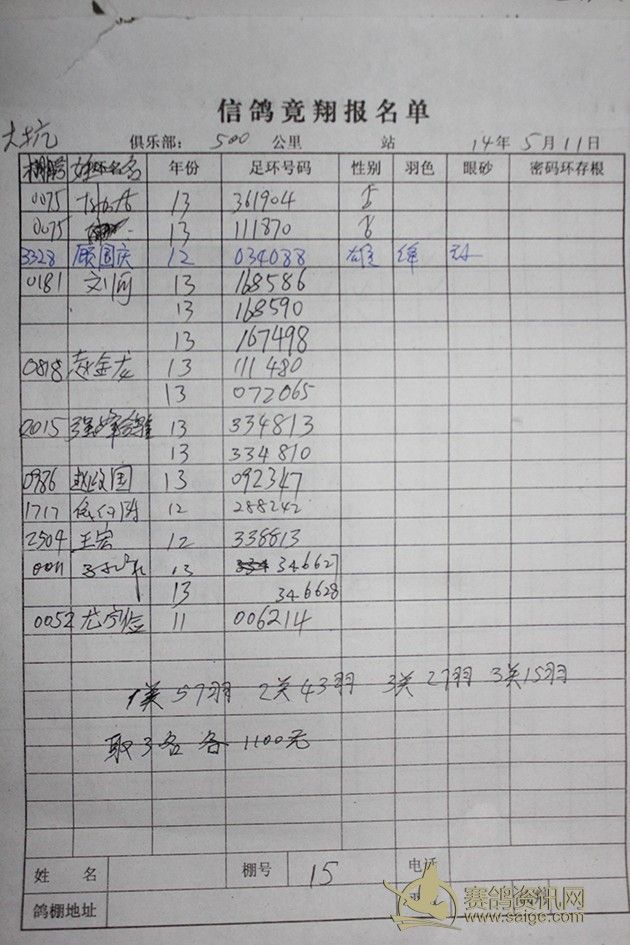 信鸽竟翔报名单
大坑 俱乐部: 500 公里 站 14年 5月 11日
棚号 姓名 年份 足环号码 性别 羽色 眼砂 密码环存根
0075 13 361904
0075 13 111870
3328 顾国庆 12 034088 雄 绛 砂
0181 刘闯 13 168586
13 168590
13 167498
0818 赵金龙 13 111480
13 072065
0015 13 334813
13 334810
0986 赵国 13 092347
1717 12 288242
2504 王宏 12 338813
0011 13 346627
13 346628
0052 11 006214
1关57羽 2关43羽 3关27羽 3关15羽
取3名各1100元
姓名 棚号 15 电话
鸽棚地址
赛鸽资讯网
www.saige.com